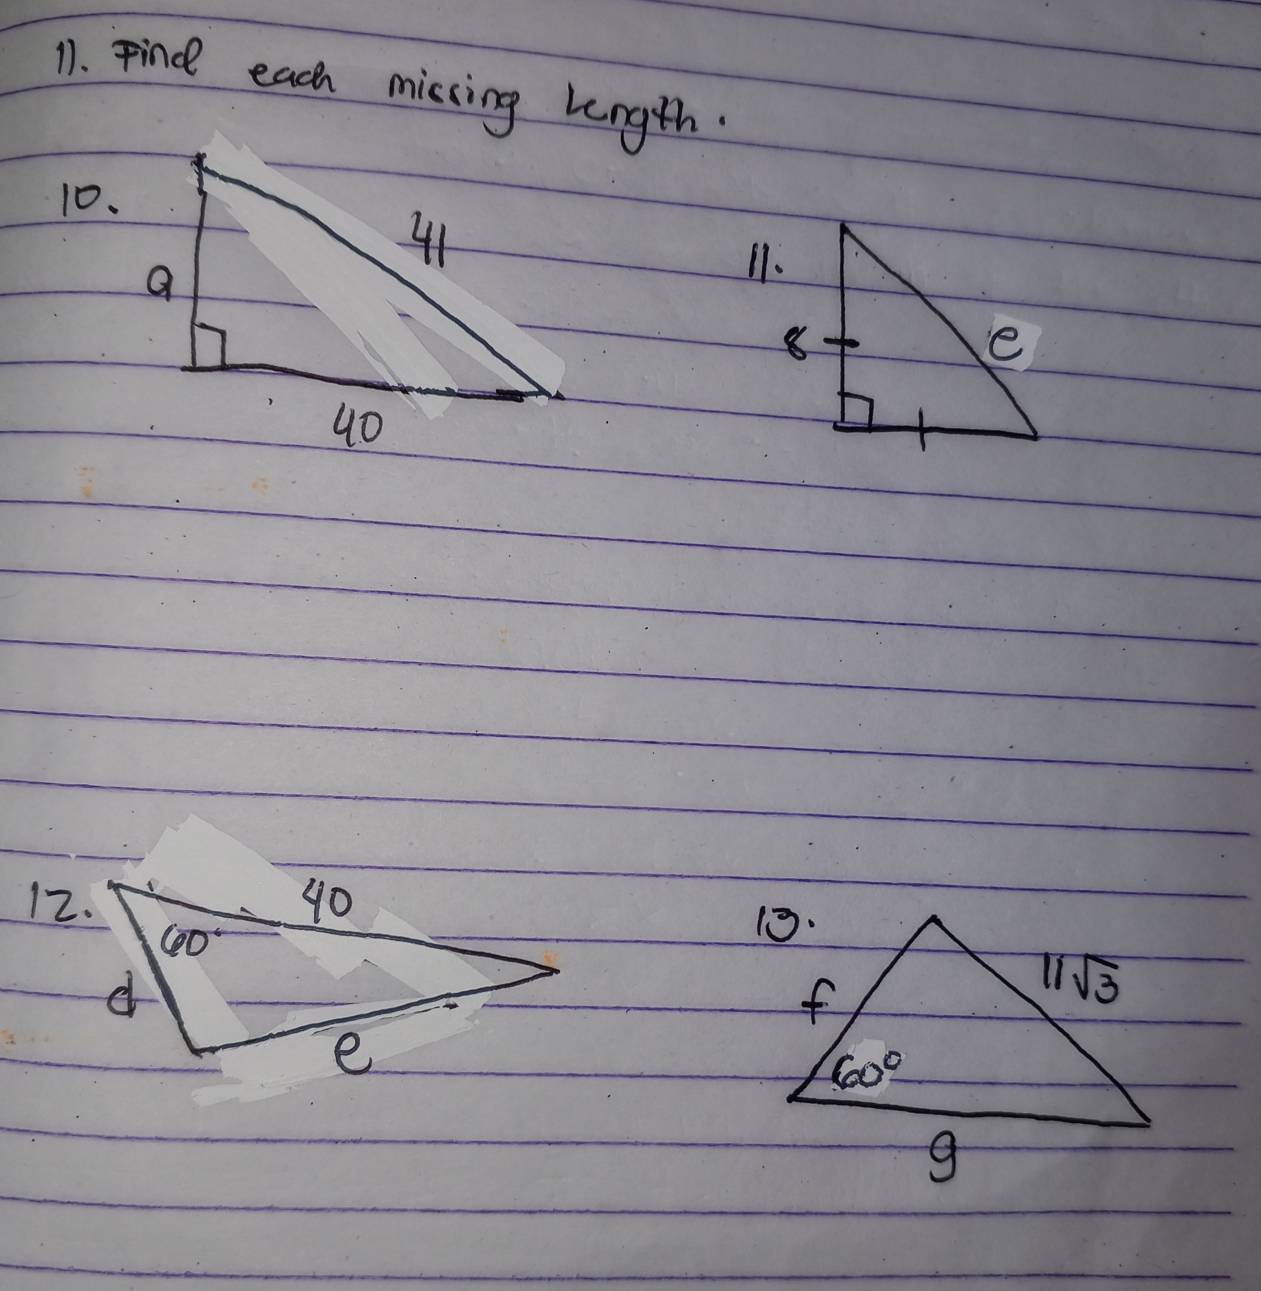 11. Find each missing Length.
10.
41
a
40
11.
8
e
12.
40
60°
d
e
13.
f
11√3
60°
g